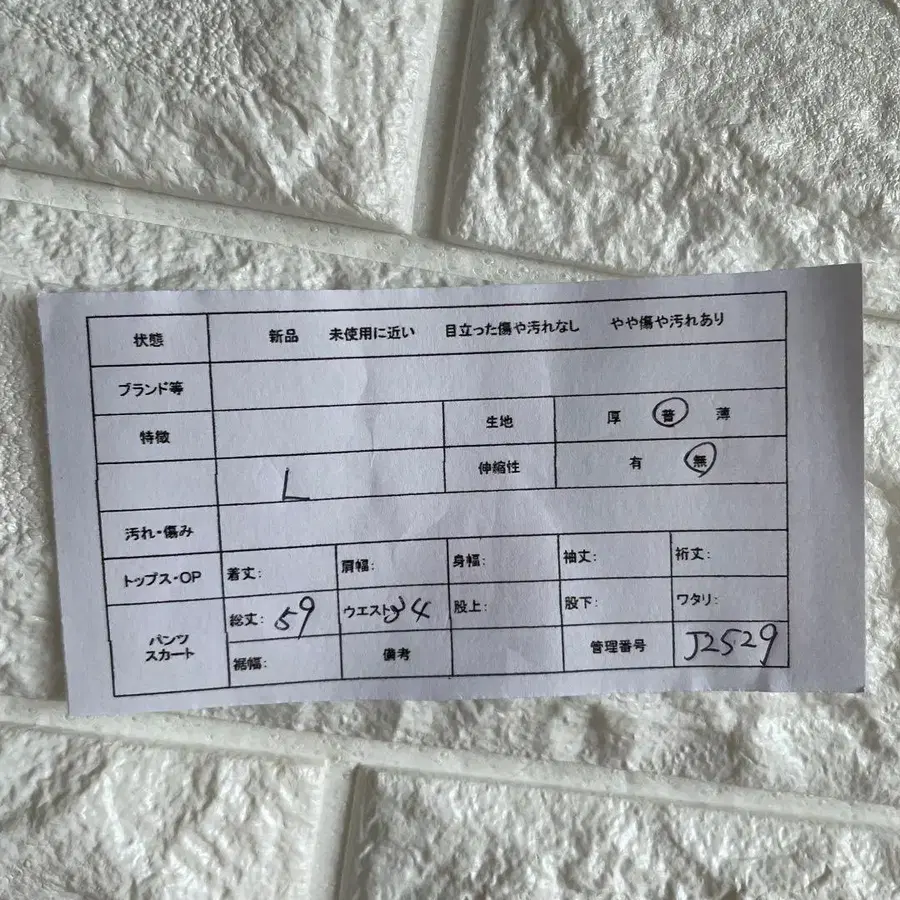 状態 新品 未使用に近い 目立った傷や汚れなし やや傷や汚れあり
ブランド等
特徴 生地 厚 普 薄
L 伸縮性 有 無
汚れ・傷み
トップス・OP 着丈: 肩幅: 身幅: 袖丈: 裄丈:
パンツ スカート
総丈: 59 ウエスト: 34 股上: 股下: ワタリ:
裾幅: 備考 管理番号 J2529